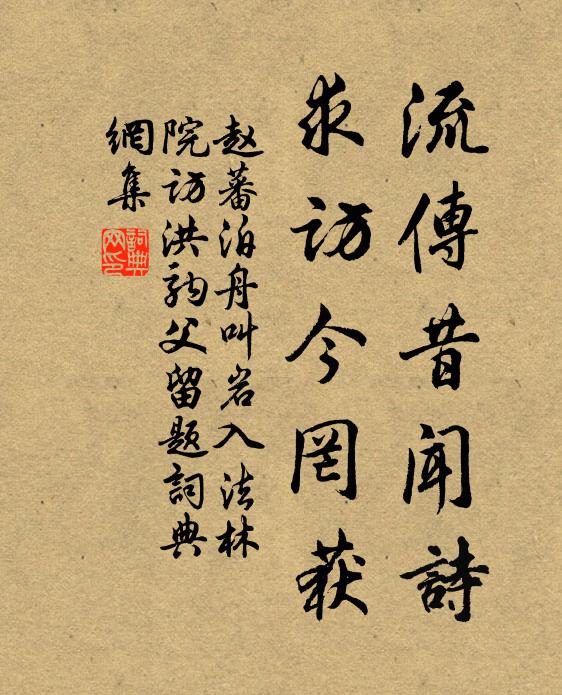 流傳昔聞詩
求訪今罔获
赵蕃泊舟叫岩入法林
院访洪駒父留题詞典
網集
詞典網印